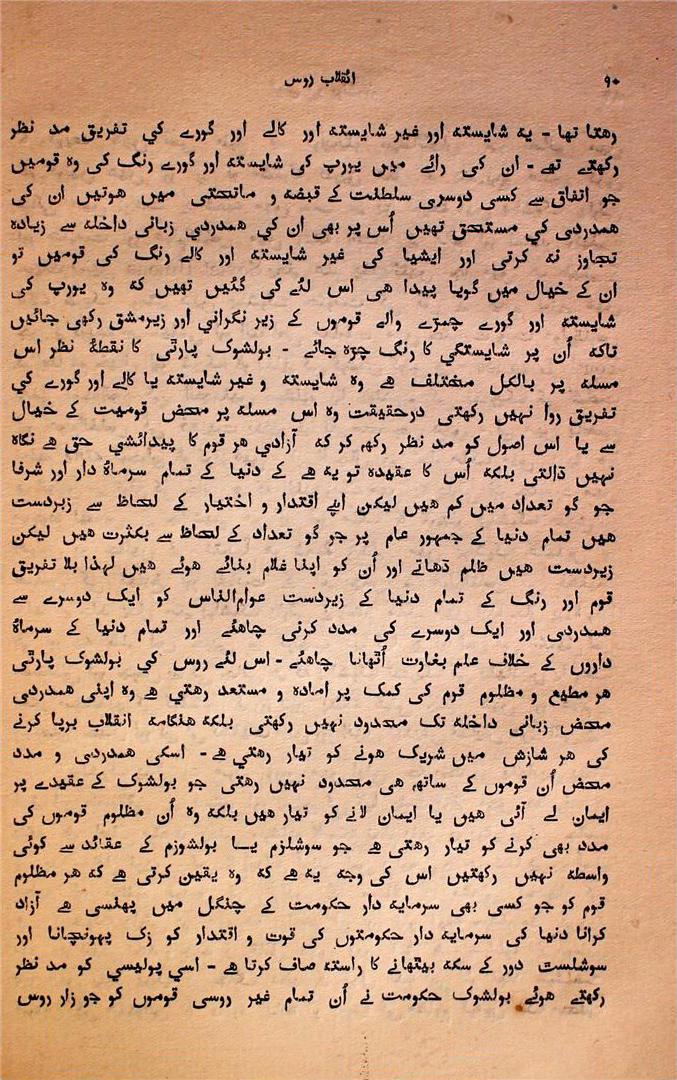 ۹۰
انقلاب روس
رهتا تها - یه شایسته اور غیر شایسته اور کالے اور گورے کي تفریق مد نظر
رکهتے تهے - ان کی رائے میں یورپ کی شایسته اور گورے رنگ کی وه قومیں
جو اتفاق سے کسی دوسری سلطنت کے قبضه و ماتحتی میں هوتیں ان کی
همدردی کي مستحق تهیں اُس پر بهی ان کي همدردي زبانی داخله سے زیاده
تجاوز نه کرتی اور ایشیا کی غیر شایسته اور کالے رنگ کی قومیں تو
ان کے خیال میں گویا پیدا هی اس لئے کی گئیں تهیں که وه یورپ کی
شایسته اور گورے چمڑے والے قوموں کے زیر نگرانی اور زیرمشق رکهی جائیں
تاکه اُن پر شایستگي کا رنگ چڑه جائے - بولشوک پارٹی کا نقطۂ نظر اس
مسله پر بالکل مختلف هے وه شایسته و غیر شایسته یا کالے اور گورے کي
تفریق روا نهیں رکهتی درحقیقت وه اس مسله پر محض قومیت کے خیال
سے یا اس اصول کو مد نظر رکهه کر که آزادی هر قوم کا پیدائشي حق هے نگاه
نهیں ڈالتی بلکه اُس کا عقیده تو یه هے که دنیا کے تمام سرمائه دار اور شرفا
جو گو تعداد میں کم هیں لیکن اپنے اقتدار و اختیار کے لحاظ سے زبردست
هیں تمام دنیا کے جمهور عام پر جو گو تعداد کے لحاظ سے بکثرت هیں لیکن
زیردست هیں ظلم ڈهاتے اور اُن کو اپنا غلام بنائے هوئے هیں لهذا بلا تفریق
قوم اور رنگ کے تمام دنیا کے زیردست عوام‌الناس کو ایک دوسرے سے
همدردی اور ایک دوسرے کی مدد کرنی چاهئے اور تمام دنیا کے سرمائه
داروں کے خلاف علم بغاوت اُٹهانا چاهئے - اس لئے روس کي بولشوک پارٹی
هر مطیع و مظلوم قوم کی کمک پر اماده و مستعد رهتي هے وه اپنی همدردی
محض زبانی داخله تک محدود نهیں رکهتی بلکه هنگامه انقلاب برپا کرنے
کی هر شازش میں شریک هونے کو تیار رهتي هے - اسکی همدردی و مدد
محض اُن قوموں کے ساتهه هی محدود نهیں رهتی جو بولشوک کے عقیدے پر
ایمان لے آئی هیں یا ایمان لانے کو تیار هیں بلکه وه اُن مظلوم قوموں کی
مدد بهی کرنے کو تیار رهتی هے جو سوشلزم یا بولشوزم کے عقائد سے کوئی
واسطه نهیں رکهتیں اس کی وجه یه هے که وه یقین کرتی هے که هر مظلوم
قوم کو جو کسی بهی سرمایه دار حکومت کے چنگل میں پهنسی هے آزاد
کرانا دنیا کی سرمایه دار حکومتوں کی قوت و اقتدار کو زک پهونچانا اور
سوشلست دور کے سکه بیٹهانے کا راسته صاف کرتا هے - اسي پولیسي کو مد نظر
رکهتے هوئے بولشوک حکومت نے اُن تمام غیر روسی قوموں کو جو زار روس